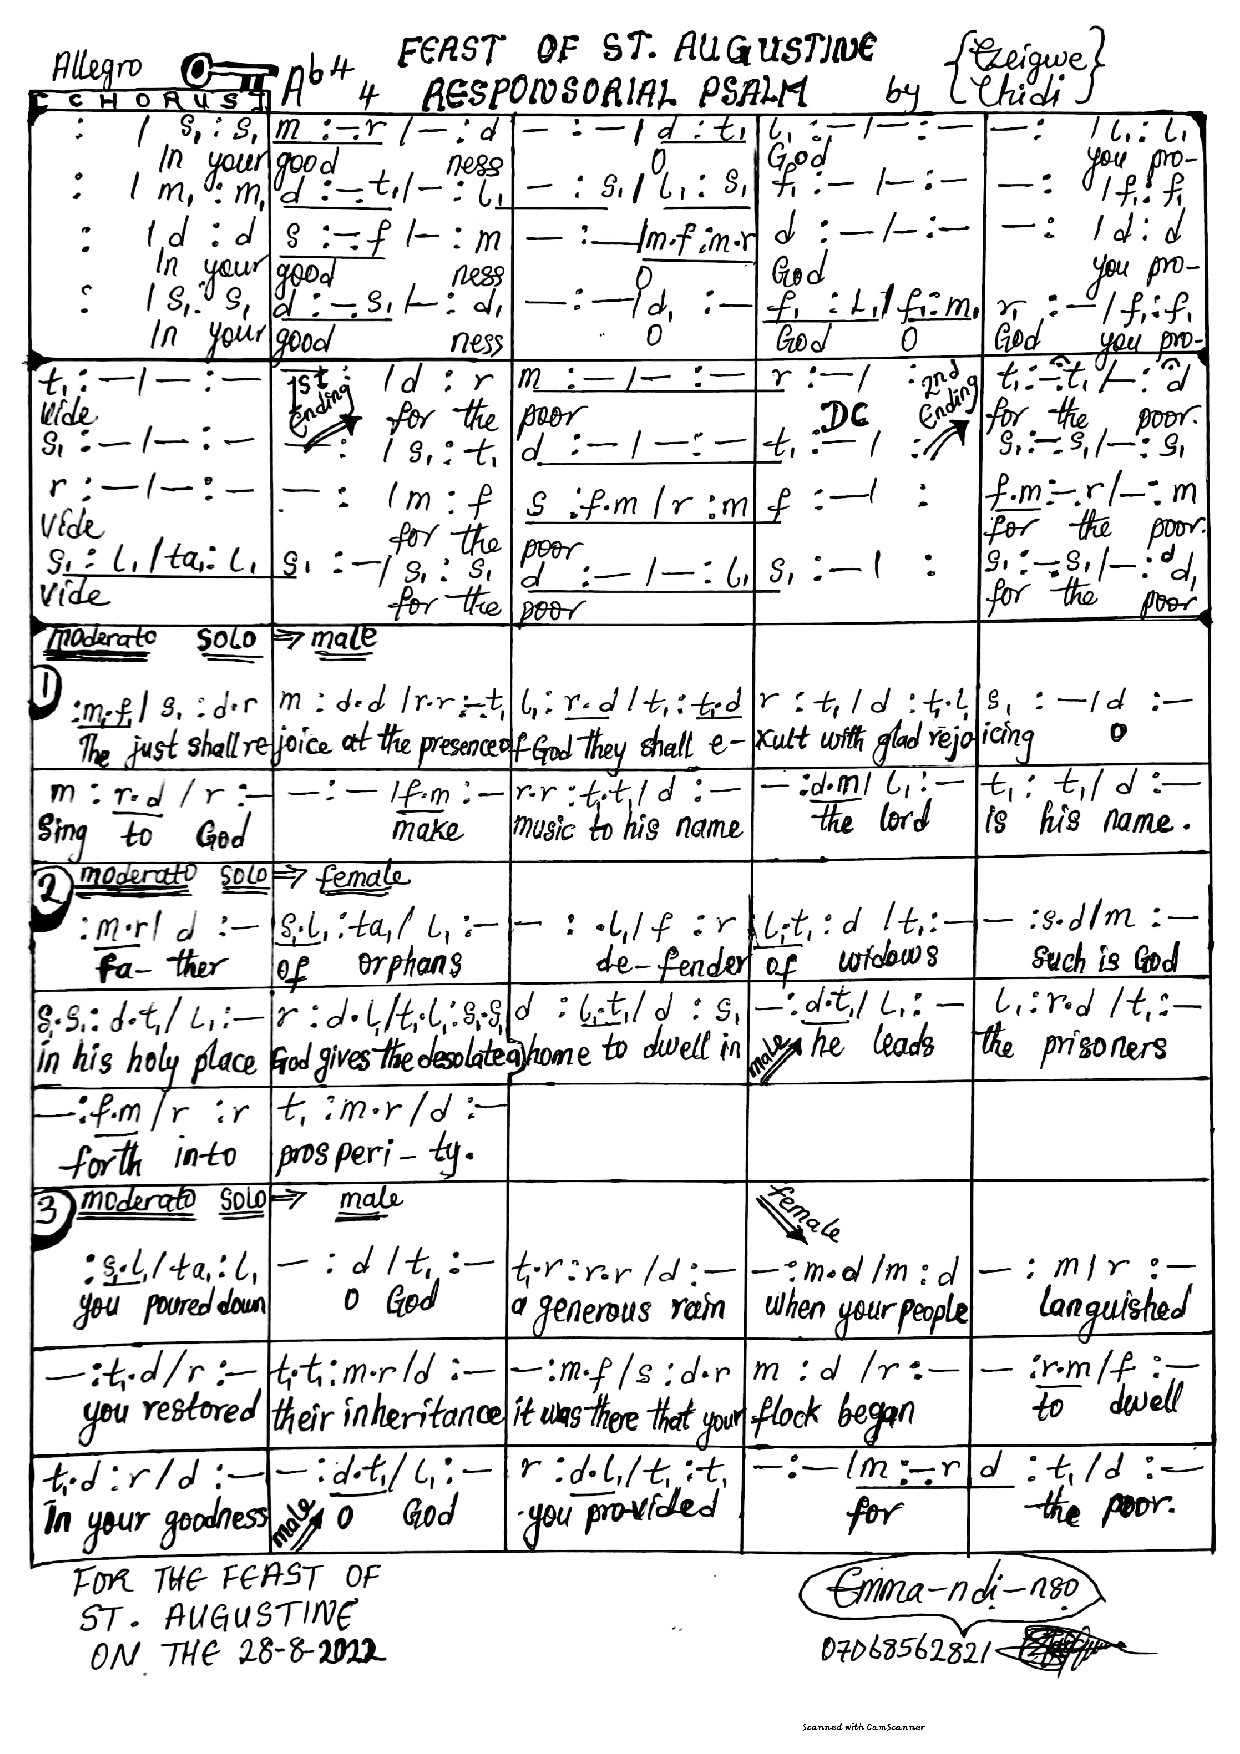 FEAST OF ST. AUGUSTINE
Allegro Ab 4/4 RESPONSORIAL PSALM by {Ezeigwe Chidi}
CHORUS
: / s₁ : s₁ m : – : r / – : d – : – / d : t₁ l₁ : – / – : – – : / l₁ : l₁
In your good ness O God you pro-
: / m₁ : m₁ d : – : t₁ / – : l₁ – : s₁ / l₁ : s₁ f₁ : – / – : – – : / f₁ : f₁
: / d : d s : – : f / – : m – : – / m.f : m.r d : – / – : – – : / d : d
In your good ness O God you pro-
: / s₁ : s₁ d : – : s₁ / – : d₁ – : – / d₁ : – f₁ : l₁ / f₁ : m₁ r₁ : – / f₁ : f₁
In your good ness O God O God you pro-
t₁ : – / – : – 1st Ending / d : r m : – / – : – r : – / : 2nd Ending t₁ : – : t₁ / – : d
vide for the poor DC for the poor.
s₁ : – / – : – – : / s₁ : t₁ d : – / – : – t₁ : – / : s₁ : – : s₁ / – : s₁
r : – / – : – – : / m : f s : f.m / r : m f : – / : f.m : – . r / – : m
vide for the poor for the poor.
s₁ : l₁ / ta₁ : l₁ s₁ : – / s₁ : s₁ d : – / – : l₁ s₁ : – / : s₁ : – : s₁ / – : d d₁
vide for the poor for the poor
moderato SOLO ⇒ male
1
: m.f / s₁ : d.r m : d.d / r.r : – t₁ l₁ : r.d / t₁ : t₁.d r : t₁ / d : t₁.l₁ s₁ : – / d : –
The just shall rejoice at the presence of God they shall e- xult with glad rejo icing O
m : r.d / r : – – : – / f.m : – r.r : t₁.t₁ / d : – – : d.m / l₁ : – t₁ : t₁ / d : –
Sing to God make music to his name the lord is his name.
2 moderato SOLO ⇒ female
: m.r / d : – s₁.l₁ : ta₁ / l₁ : – – : .l₁ / f : r l₁.t₁ : d / t₁ : – – : s.d / m : –
fa- ther of orphans de- fender of widows such is God
s₁.s₁ : d.t₁ / l₁ : – r : d.l₁ / t₁.l₁ : s₁.s₁ d : l₁.t₁ / d : s₁ – : d.t₁ / l₁ : – l₁ : r.d / t₁ : –
in his holy place God gives the desolate a home to dwell in male he leads the prisoners
– : f.m / r : r t₁ : m.r / d : –
forth in-to prosperi- ty.
3 moderato SOLO ⇒ male female
: s₁.l₁ / ta₁ : l₁ – : d / t₁ : – t₁.r : r.r / d : – – : m.d / m : d – : m / r : –
you poured down O God a generous rain when your people languished
– : t₁.d / r : – t₁.t₁ : m.r / d : – – : m.f / s : d.r m : d / r : – – : r.m / f : –
you restored their inheritance it was there that your flock began to dwell
t₁.d : r / d : – – : d.t₁ / l₁ : – r : d.l₁ / t₁ : t₁ – : – / m : – : r d : t₁ / d : –
In your goodness male O God you provided for the poor.
FOR THE FEAST OF
ST. AUGUSTINE
ON THE 28-8-2022
Emma-ndi-nso
07068562821
Scanned with CamScanner